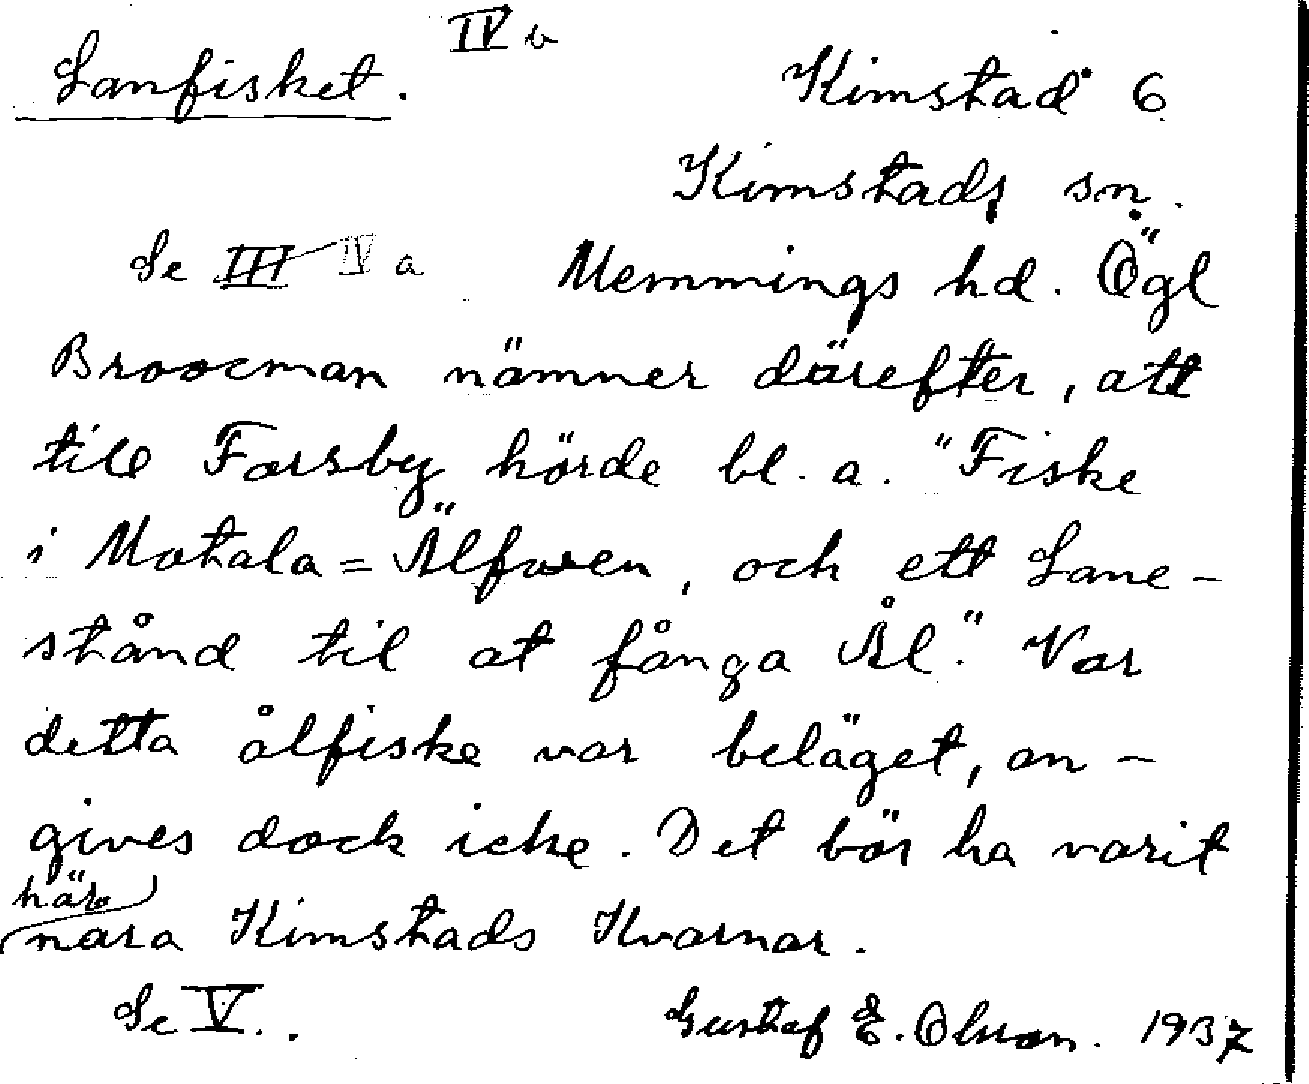 IV b
Lanfisket.
Kimstad 6
Kimstads sn.
Se III IV a Memmings hd. Ögl
Broocman nämner därefter, att
till Forsby hörde bl. a. "Fiske
i Motala=Älfwen, och ett Lane-
stånd til at fånga Ål." Var
detta ålfiske var beläget, an-
gives dock icke. Det bör ha varit
här
nära Kimstads Kvarnar.
Se V.
Gustaf E. Olsson. 1937